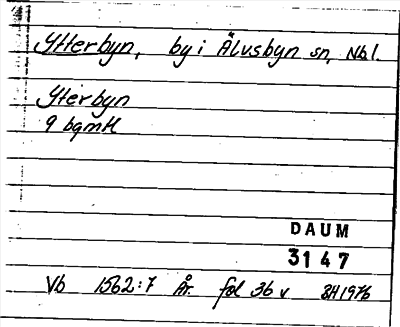 Ytterbyn, by i Älvsbyn sn, Nbl.
Yterbyn
9 bgmH
DAUM
3147
Vb 1562:7 År. fol 36 v BH 1976